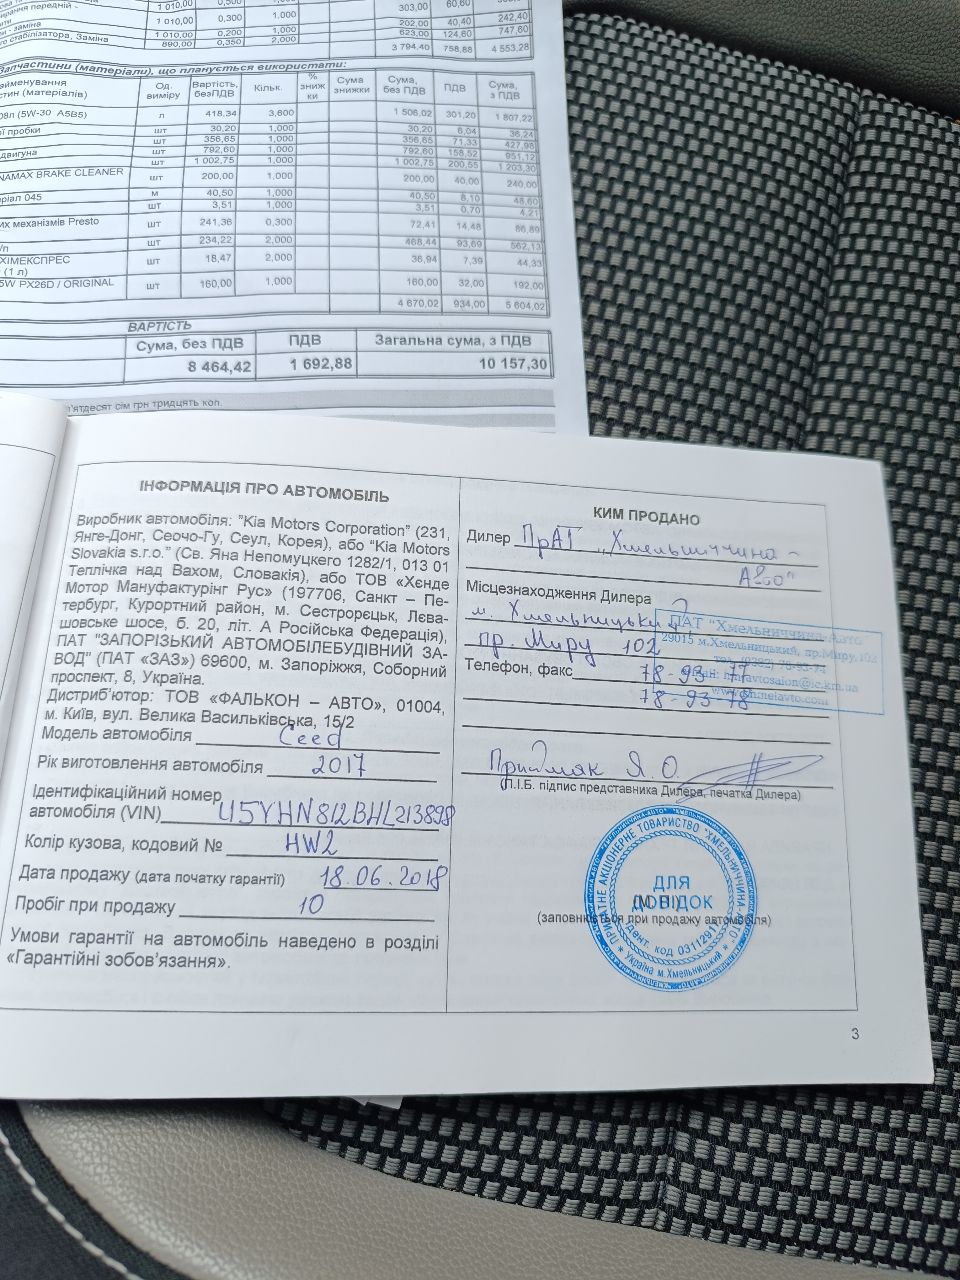 ирання передній -
1 010,00 0,300 1,000 303,00 60,60
1 010,00 0,200 1,000 202,00 40,40 242,40
го стабілізатора, Заміна 890,00 0,350 2,000 623,00 124,60 747,60
3 794,40 758,88 4 553,28
Запчастини (матеріали), що планується використати:
айменування
стин (матеріалів) Од. виміру Вартість, безПДВ Кільк. % зниж ки Сума знижки Сума, без ПДВ ПДВ Сума, з ПДВ
08л (5W-30 A5B5) л 418,34 3,600 1 506,02 301,20 1 807,22
ої пробки шт 30,20 1,000 30,20 6,04 36,24
шт 356,65 1,000 356,65 71,33 427,98
двигуна шт 792,60 1,000 792,60 158,52 951,12
шт 1 002,75 1,000 1 002,75 200,55 1 203,30
NAMAX BRAKE CLEANER шт 200,00 1,000 200,00 40,00 240,00
еріал 045 м 40,50 1,000 40,50 8,10 48,60
шт 3,51 1,000 3,51 0,70 4,21
их механізмів Presto шт 241,36 0,300 72,41 14,48 86,89
/п шт 234,22 2,000 468,44 93,69 562,13
ХІМЕКСПРЕС
(1 л) шт 18,47 2,000 36,94 7,39 44,33
5W PX26D / ORIGINAL шт 160,00 1,000 160,00 32,00 192,00
4 670,02 934,00 5 604,02
ВАРТІСТЬ
Сума, без ПДВ ПДВ Загальна сума, з ПДВ
8 464,42 1 692,88 10 157,30
п'ятдесят сім грн тридцять коп.
ІНФОРМАЦІЯ ПРО АВТОМОБІЛЬ
Виробник автомобіля: "Kia Motors Corporation" (231,
Янге-Донг, Сеочо-Гу, Сеул, Корея), або "Kia Motors
Slovakia s.r.o." (Св. Яна Непомуцкего 1282/1, 013 01
Теплічка над Вахом, Словакія), або ТОВ «Хенде
Мотор Мануфактурінг Рус» (197706, Санкт – Пе-
тербург, Курортний район, м. Сестрорецьк, Лева-
шовське шосе, б. 20, літ. А Російська Федерація),
ПАТ "ЗАПОРІЗЬКИЙ АВТОМОБІЛЕБУДІВНИЙ ЗА-
ВОД" (ПАТ «ЗАЗ») 69600, м. Запоріжжя, Соборний
проспект, 8, Україна.
Дистриб'ютор: ТОВ «ФАЛЬКОН – АВТО», 01004,
м. Київ, вул. Велика Васильківська, 15/2
Модель автомобіля Ceed
Рік виготовлення автомобіля 2017
Ідентифікаційний номер
автомобіля (VIN) U5YHN812BHL213898
Колір кузова, кодовий № HW2
Дата продажу (дата початку гарантії) 18.06.2018
Пробіг при продажу 10
Умови гарантії на автомобіль наведено в розділі
«Гарантійні зобов'язання».
КИМ ПРОДАНО
Дилер ПрАТ „Хмельниччина -
Авто"
Місцезнаходження Дилера
м. Хмельницький
пр. Миру 102
ПАТ "Хмельниччина-Авто
29015 м.Хмельницький, пр.Миру,102
Телефон, факс 78-93-77
78-93-78
Придмяк Я. О.
(П.І.Б. підпис представника Дилера, печатка Дилера)
ПРИВАТНЕ АКЦІОНЕРНЕ ТОВАРИСТВО "ХМЕЛЬНИЧЧИНА-АВТО"
ДЛЯ
ДОВІДОК
(М.П.)
(заповнюється при продажу автомобіля)
Ідент. код
* Україна м.Хмельницький *
3